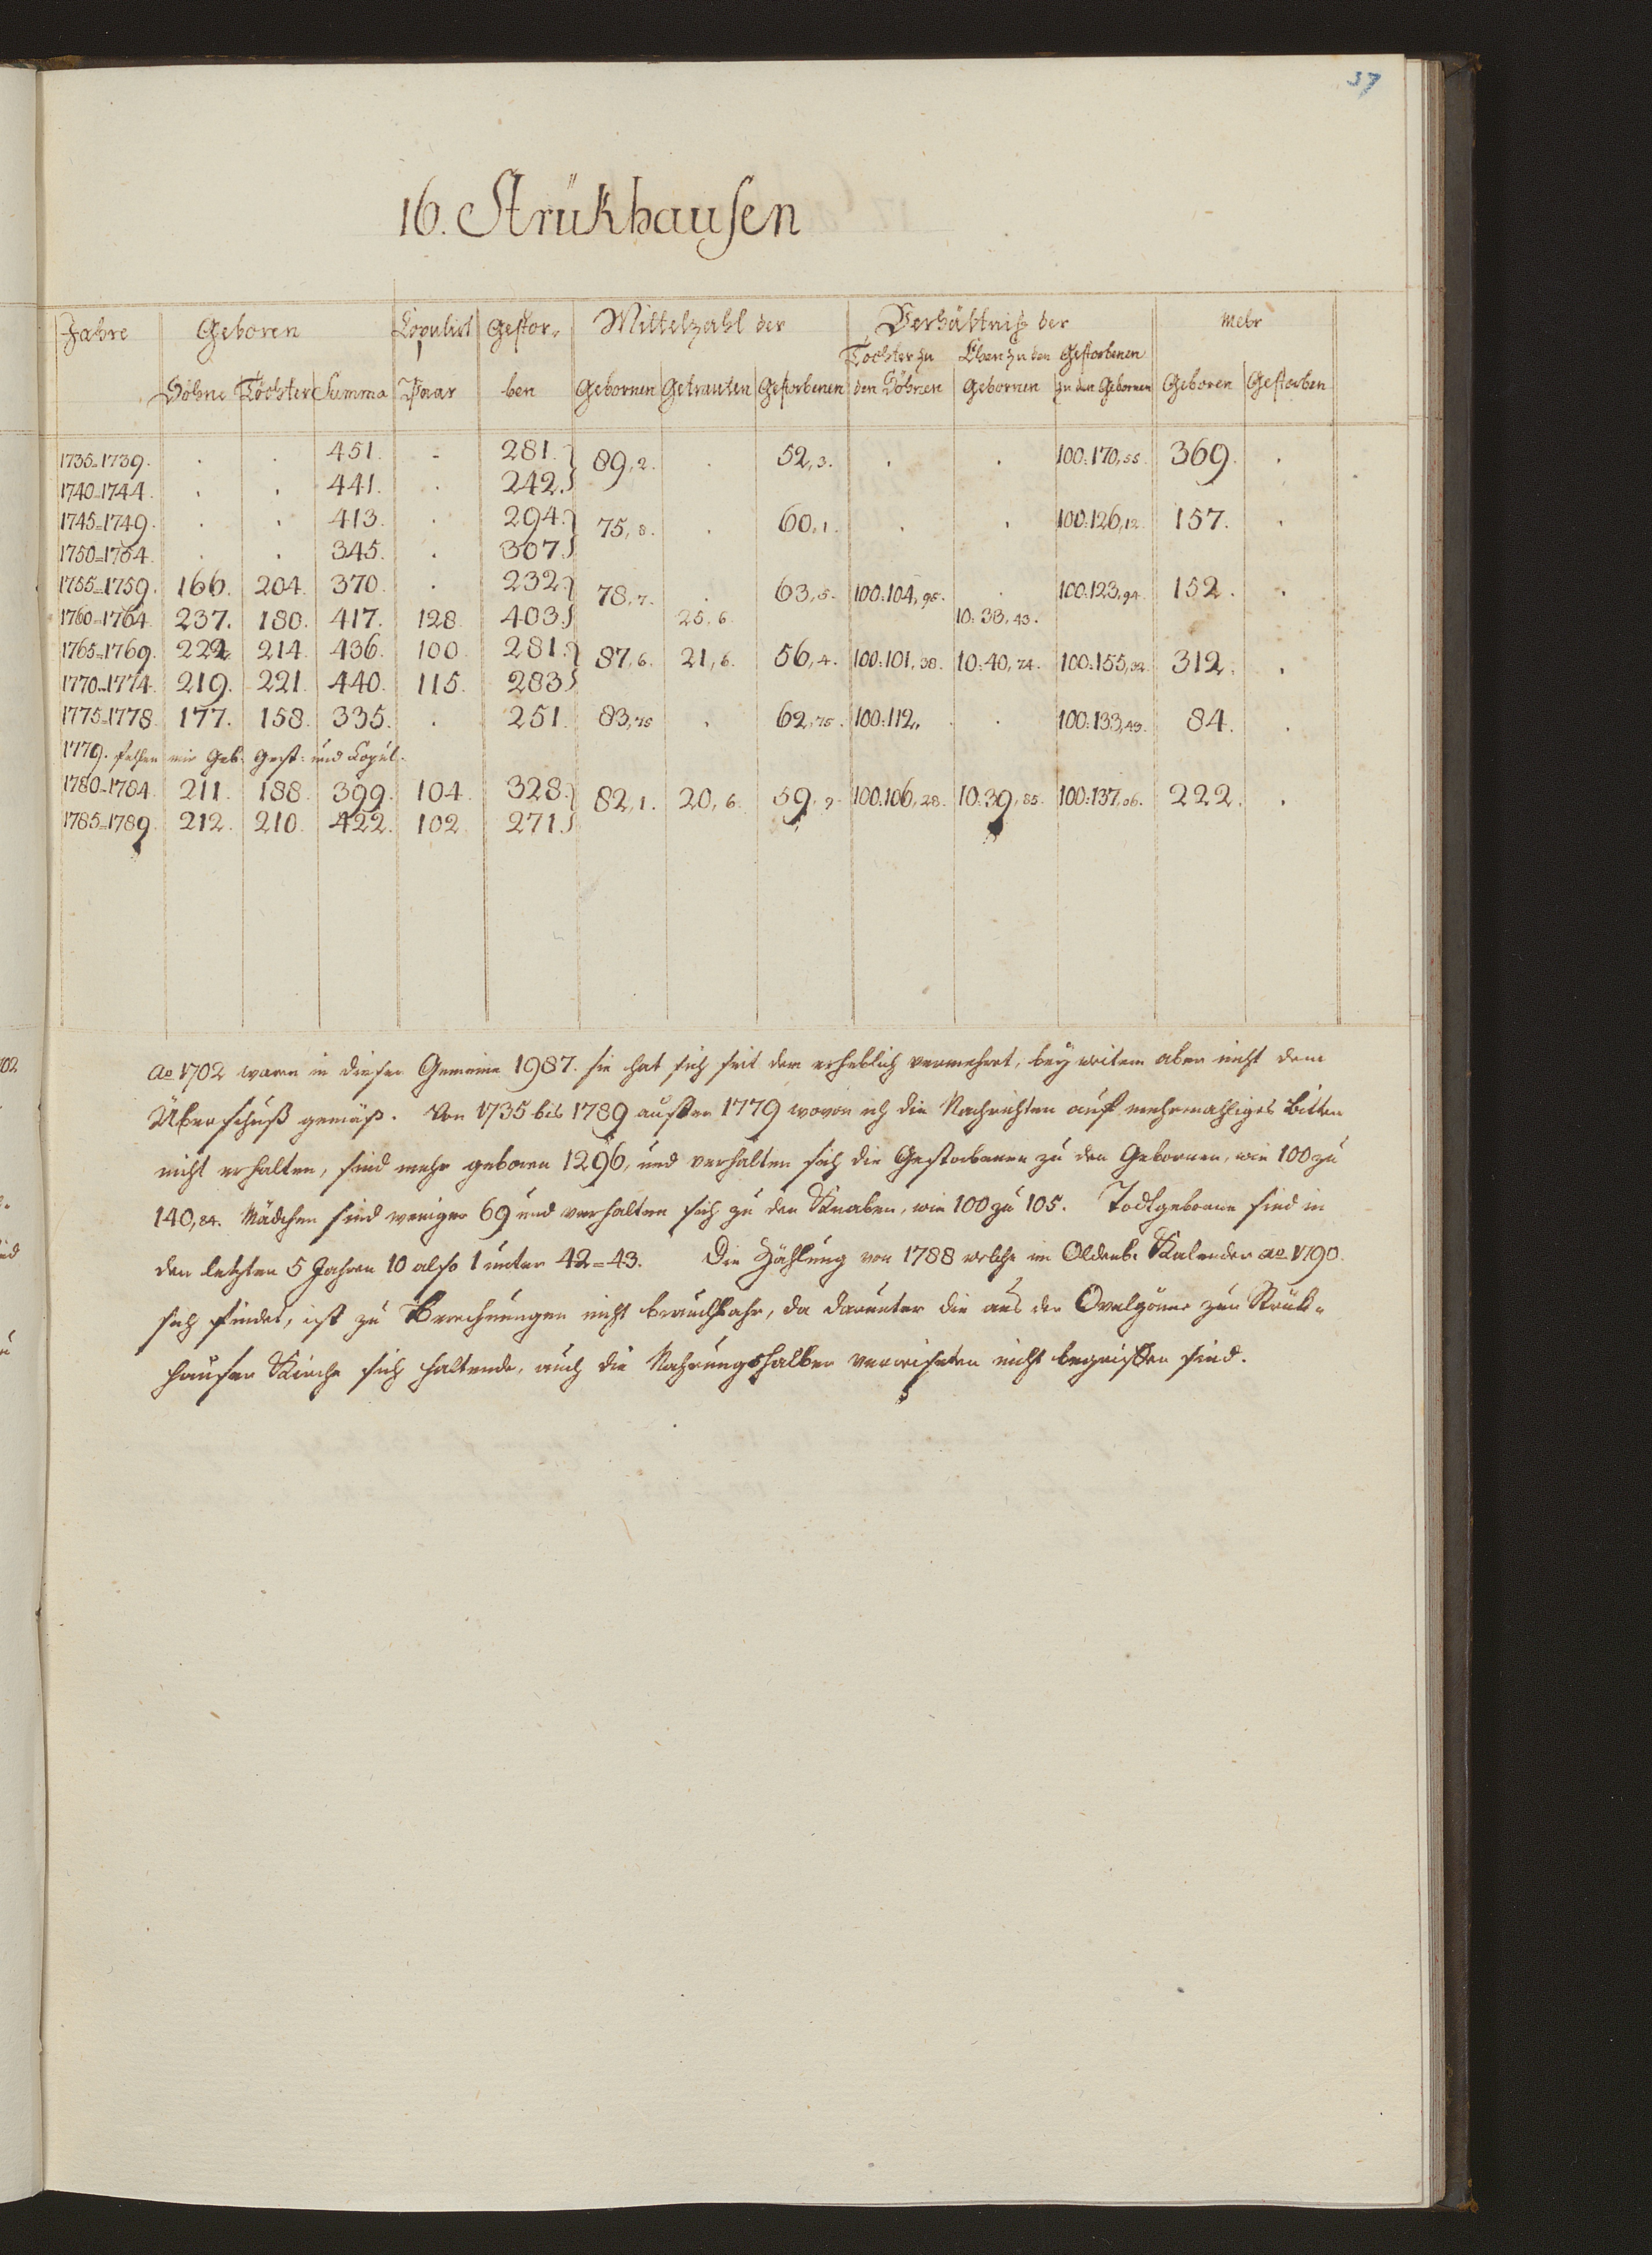 37
16. Strükhausen
Jahre Geboren Copulirt Gestor- Mittelzahl der Verhältniß der Mehr
Töchter zu Ehen zu den Gestorbenen
Söhne Töchter Summa Paar ben Gebornen Getrauten Gestorbenen den Söhnen Gebornen zu den Gebornen Geboren Gestorben
1735=1739. . . 451. - 281. 89,2. . 52,3. . . 100:170,55. 369. .
1740=1744. . . 441. . 242.
1745=1749. . . 413. . 294. 75,8. . 60,1. . . 100:126,12. 157. .
1750=1754. . . 345. . 307.
1755=1759. 166. 204. 370. . 232. 78,7. . 63,5. 100:104,95. . 100:123,94. 152. .
1760=1764. 237. 180. 417. 128. 403. 25,6. 10:38,43.
1765=1769. 222. 214. 436. 100. 281. 87,6. 21,6. 56,4. 100:101,38. 10:40,74. 100:155,32. 312. .
1770=1774. 219. 221. 440. 115. 283.
1775=1778. 177. 158. 335. . 251. 83,75 . 62,75. 100:112,. . 100:133,43. 84. .
1779. fehlen mir Geb. Gest: und Copul.
1780=1784. 211. 188. 399. 104. 328. 82,1. 20,6. 59,9. 100:106,28. 10:39,85. 100:137,06. 222. .
1785=1789. 212. 210. 422. 102. 271.
ao 1702 waren in dieser Gemeine 1987. sie hat sich seit dem erheblich vermehrt, bey weitem aber nicht dem
Überschuß gemäß. Von 1735 bis 1789 außer 1779 wovon ich die Nachrichten auf mehrmahliges Bitten
nicht erhalten, sind mehr geboren 1296, und verhalten sich die Gestorbenen zu den Gebornen, wie 100 zu
140,84. Mädchen sind weniger 69 und verhalten sich zu den Knaben, wie 100 zu 105. Todtgeborne sind in
den letzten 5 Jahren 10 also 1 unter 42=43. Die Zählung von 1788 welche im Oldenb. Kalender ao 1790.
sich findet, ist zu Berechnungen nicht brauchbahr, da darunter die aus der Ovelgönne zur Strük-
hauser Kirche sich haltende, auch die Nahrungshalber verreiseten nicht begriffen sind.